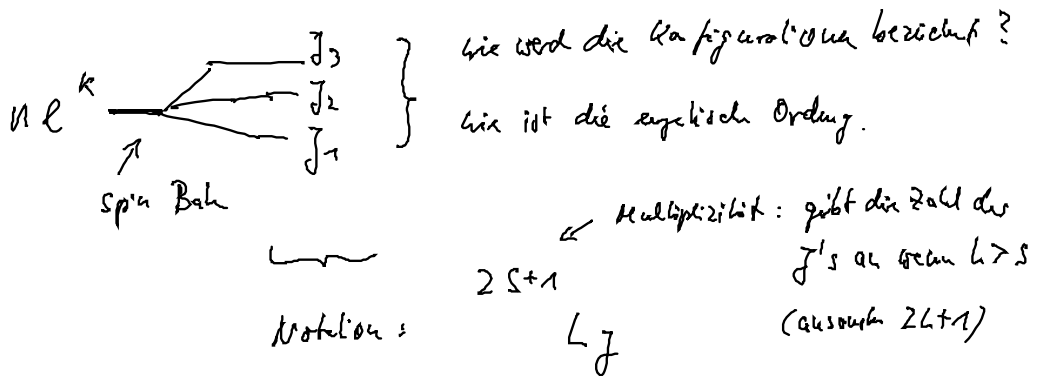 n l^k
J3
J2
J1
wie werd die Konfigurationen bezeichnet ?
wie ist die energetisch Ordung.
Spin Bahn
Multiplizität : gibt die Zahl der
J's an wenn L > S
(ansonsten 2L+1)
Notation :
2S+1
L J